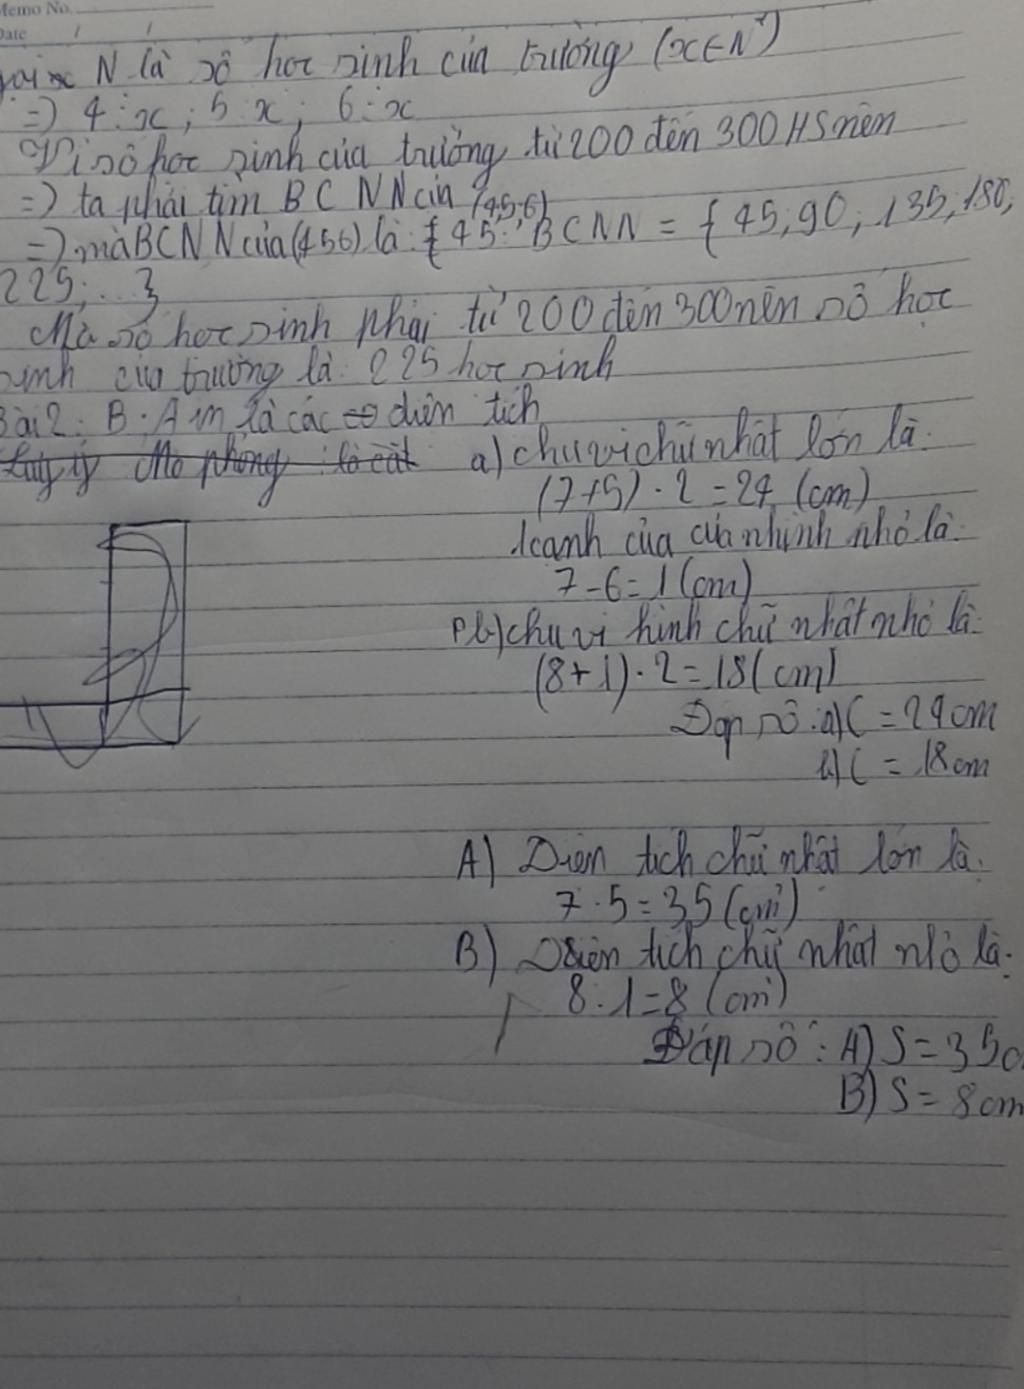 Memo No.
Date / /
N là số học sinh của trường (x∈N*)
=) 4:x; 5:x; 6:x
Vì số học sinh của trường từ 200 đến 300 HS nên
=) ta phải tìm BCNN của (4,5,6)
=) mà BCNN của (4 5 6) là: { 45. BCNN = { 45; 90; 135; 180;
225; ... }
Mà số học sinh phải từ 200 đến 300 nên số học
sinh của trường là: 225 học sinh
Bài 2: B. A m là các diên tích
Mô phỏng là cắt
a) chu vi chữ nhật lớn là:
(7+5).2=24 (cm)
1 canh của của nhình nhỏ là:
7-6=1(cm)
b) chu vi hình chữ nhật nhỏ là:
(8+1).2=18(cm)
Đap số: a) C = 24cm
b) C = 18cm
A) Diên tích chữ nhật lớn là:
7.5=35(cm²)
B) Diên tích chữ nhật nhỏ là:
8.1=8 (cm²)
Đáp số: A) S=35c
B) S= 8cm